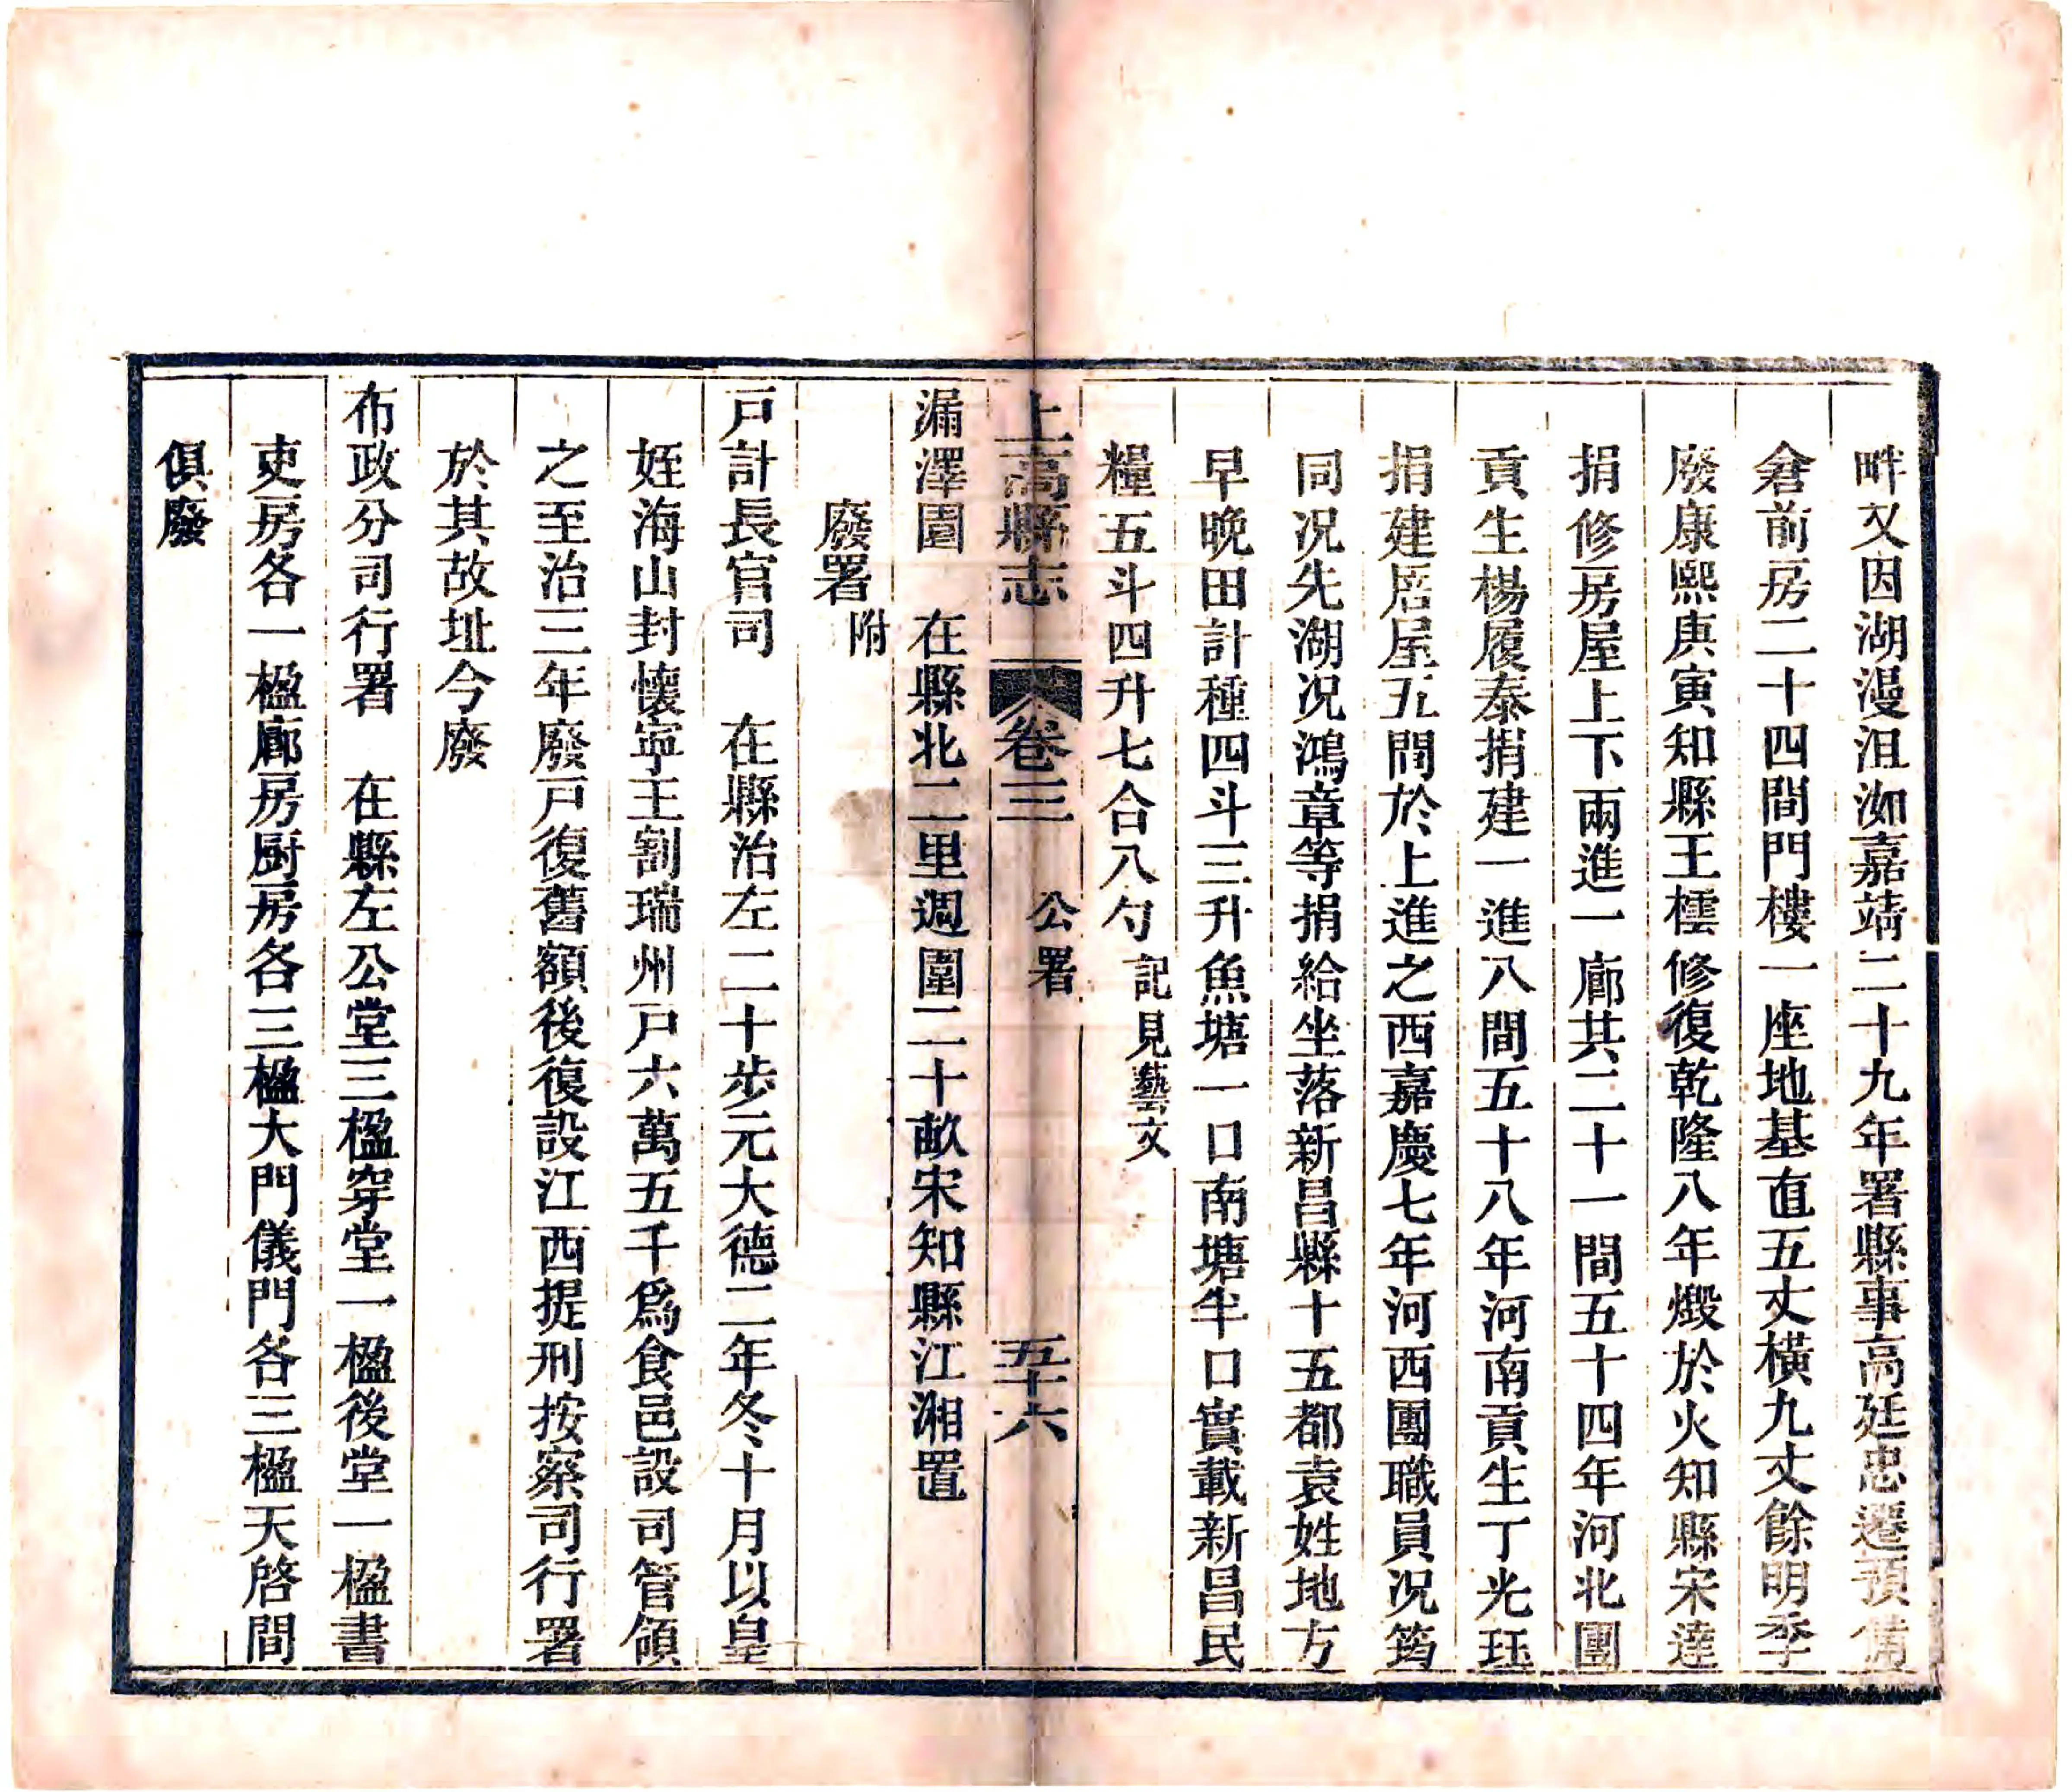 畔又因湖漫沮洳嘉靖二十九年署縣事高廷忠遷預備
倉前房二十四間門樓一座地基直五丈橫九丈餘明季
廢康熙庚寅知縣王樰修復乾隆八年燬於火知縣宋逵
捐修房屋上下兩進一廊共二十一間五十四年河北團
貢生楊履泰捐建一進八間五十八年河南貢生丁光珏
捐建居屋五間於上進之西嘉慶七年河西團職員况筠
同况先湖况鴻章等捐給坐落新昌縣十五都袁姓地方
早晚田計種四斗三升魚塘一口南塘半口實載新昌民
糧五斗四升七合八勺記見藝文
上高縣志 卷三 公署 五十六
漏澤園 在縣北二里週圍二十畝宋知縣江湘置
廢署附
戸計長官司 在縣治左二十步元大德二年冬十月以皇
姪海山封懷寧王割瑞州戸六萬五千爲食邑設司管領
之至治三年廢戸復舊額後復設江西提刑按察司行署
於其故址今廢
布政分司行署 在縣左公堂三楹穿堂一楹後堂一楹書
吏房各一楹廊房厨房各三楹大門儀門各三楹天啓間
俱廢